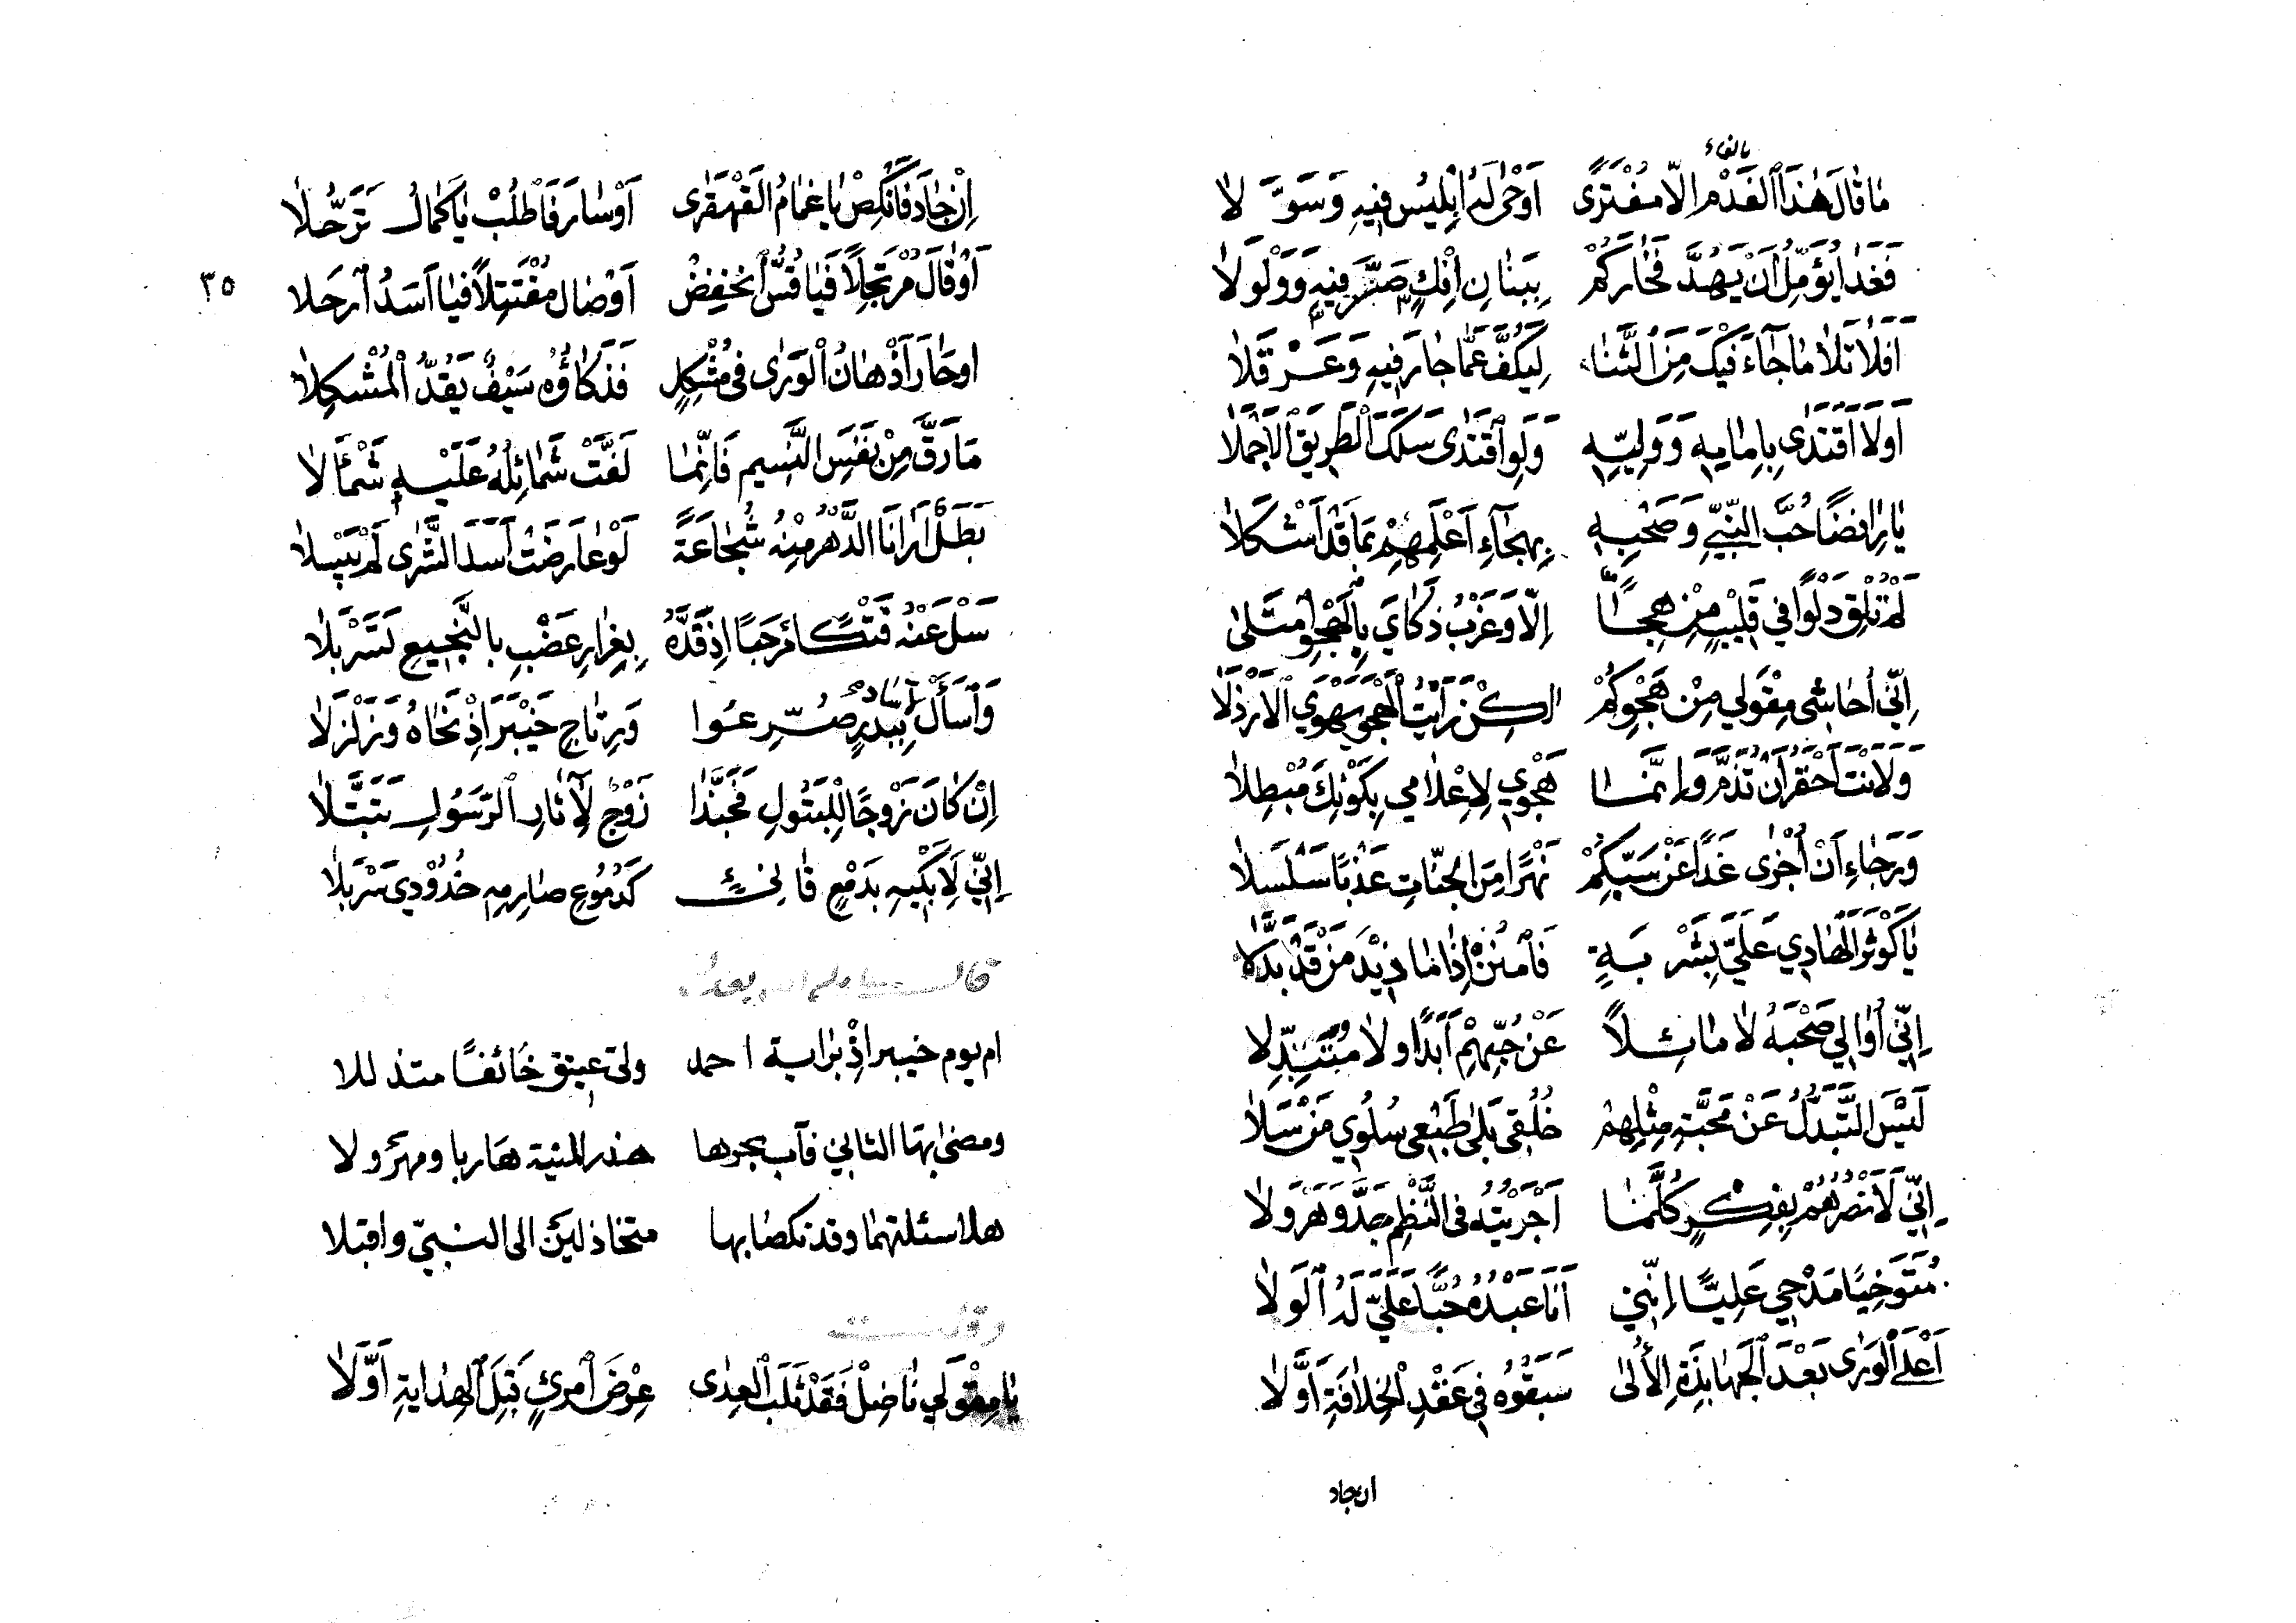 بالفاء
مَا قَالَ هٰذَا الفَدْمُ اِلّا مُفْتَرًى اَوْحٰى لَهُ اِبْلِيسُ فِيهِ وَسَوَّلا
فَغَدٰا يُؤَمِّلُ اَنْ يَهُدَّ فَخٰارَكُمْ بِبَنٰانِ اِفْكٍ صَرَّ فِيهِ وَوَلْوَلا
اَفَلٰا تَلٰا مٰا جٰآءَ فِيكَ مِنَ الثَّنٰاء لِيَكُفَّ عَمّٰا جٰارَ فِيهِ وَعَرْقَلٰا
اَوَلَا اقْتَدٰى بِاِمٰامِهِ وَوَلِيِّهِ وَلَوِ اقْتَدٰى سَلَكَ الطَرِيقَ الاَجْمَلٰا
يٰا رٰافِضًا حُبَّ النَّبِيِّ وَصَحْبِهِ بِهِجٰآءِ اَعْلَمِهِمْ بِمٰا قَدْ اَشْكَلٰا
لَمْ تُلْقِ دَلْوًا فِي قَلِيبٍ مِنْ هِجًا اِلّا وَغَرْبُ ذَكٰايَ بِالْهَجْوِ امْتَلٰى
اِنِّي اُحٰاشِي مِقْوَلِي مِنْ هَجْوِكُمْ لٰكِنْ رَاَيْتُ الْهَجْوَ يَهْوَى الاَرْذَلٰا
وَلَاَنْتَ اَحْقَرُ اَنْ تُذَمَّ وَاِنَّمٰا هَجْوِي لِاِعْلٰامِي بِكَوْنِكَ مُبْطِلٰا
وَرَجٰاءِ اَنْ اُجْزٰى غَدًا عَنْ سَبِّكُمْ نَهْرًا مِنَ الجَنّٰاتِ عَذْبًا سَلْسَلٰا
يٰا كَوْثَرَ الهٰادِي عَلَيَّ بِشَرْبَةٍ فَامْنُنْ اِذٰا مٰا ذِيدَ مَنْ قَدْ بَدَّلٰا
اِنِّي اُوٰالِي صَحْبَهُ لٰا مٰائِلاً عَنْ حُبِّهِمْ اَبَدًا وَلٰا مُتَبَدِّلا
لَيْسَ التَّبَدُّلُ عَنْ مَحَبَّةِ مِثْلِهِمْ خُلُقِي بَلٰى طَبْعِي سُلُوِّي مَنْ سَلٰا
اِنِّي لَاَنْصُرُهُمْ بِفِكْرٍ كُلَّمٰا اَجْرَيْتُهُ فِي النَّظْمِ جَدَّ وَهَرْوَلٰا
مُتَوَخِّيًا مَدْحِي عَلِيًّا اِنَّنِي اَنَا عَبْدُهُ حُبًّا عَلَيَّ لَهُ الْوَلٰا
اَعْلَى الْوَرٰى بَعْدَ الجَهٰابِذَةِ الاُلٰى سَبَقُوهُ فِي عَقْدِ الْخِلٰافَةِ اَوَّلٰا
ان جاد
اِنْ جٰادَ فَانْكِصْ يٰا غَمٰامُ القَهْقَرٰى اَوْ سٰارَ فَاطْلُبْ يٰا كَمٰالُ تَرَحُّلٰا
٣٥
اَوْ قٰالَ مُرْتَجِلاً فَيٰا قُسُّ انْخَفِضْ اَوْ صٰالَ مُقْتَتِلاً فَيٰا اَسَدُ ارْحَلا
اوحٰارَ اَذْهٰانُ الْوَرٰى فِي مُشْكِلٍ فَذَكٰاؤُهُ سَيْفٌ يَقُدُّ الْمُشْكِلٰا
مَا رَقَّ مِنْ نَفَسِ النَّسِيمِ فَاِنَّمٰا لَفَّتْ شَمٰائِلُهُ عَلَيْهِ شَمْأَلٰا
بَطَلٌ اَرَانَا الدَّهْرُ مِنْهُ شُجٰاعَةً لَوْ عٰارَضَتْ اَسَدَ الشَّرٰى لَمْ يَبْسِلٰا
سَلْ عَنْهُ فَتْكًا مَرْحَبًا اِذْ قَدَّهُ بِغِرٰارِ عَضْبٍ بِالنَّجِيعِ تَسَرْبَلٰا
وَاسْأَلْ بِبَدْرٍ صُرِّعُوا وَرِتٰاجِ خَيْبَرَ اِذْ نَحٰاهُ وَزَلْزَلٰا
اِنْ كٰانَ زَوْجًا لِلْبَتُولِ فَحَبَّذٰا زَوْجٌ لِآثٰارِ الرَّسُولِ تَبَتَّلٰا
اِنِّي لَاَبْكِيهِ بِدَمْعٍ قٰانِئٍ كَدُمُوعِ صٰارِمِهِ خُدُودِي سَرْبَلٰا
قال بعد
ام يوم خيبر اذْ برٰاية احمد ولى عتيق خٰائفًا متذللا
ومضىٰ بهٰا الثاني فآب يجرها حذر المنية هٰاربا ومهرولا
هلا سئلتهما وقد نكصا بها متخاذلين الى النبيّ واقبلا
وقلت
يٰا مِقْوَلِي نٰاضِلْ فَقَدْ ثَلَبَ العِدٰى عِرْضَ امْرِئٍ قَبِلَ الهِدٰايَةَ اَوَّلٰا